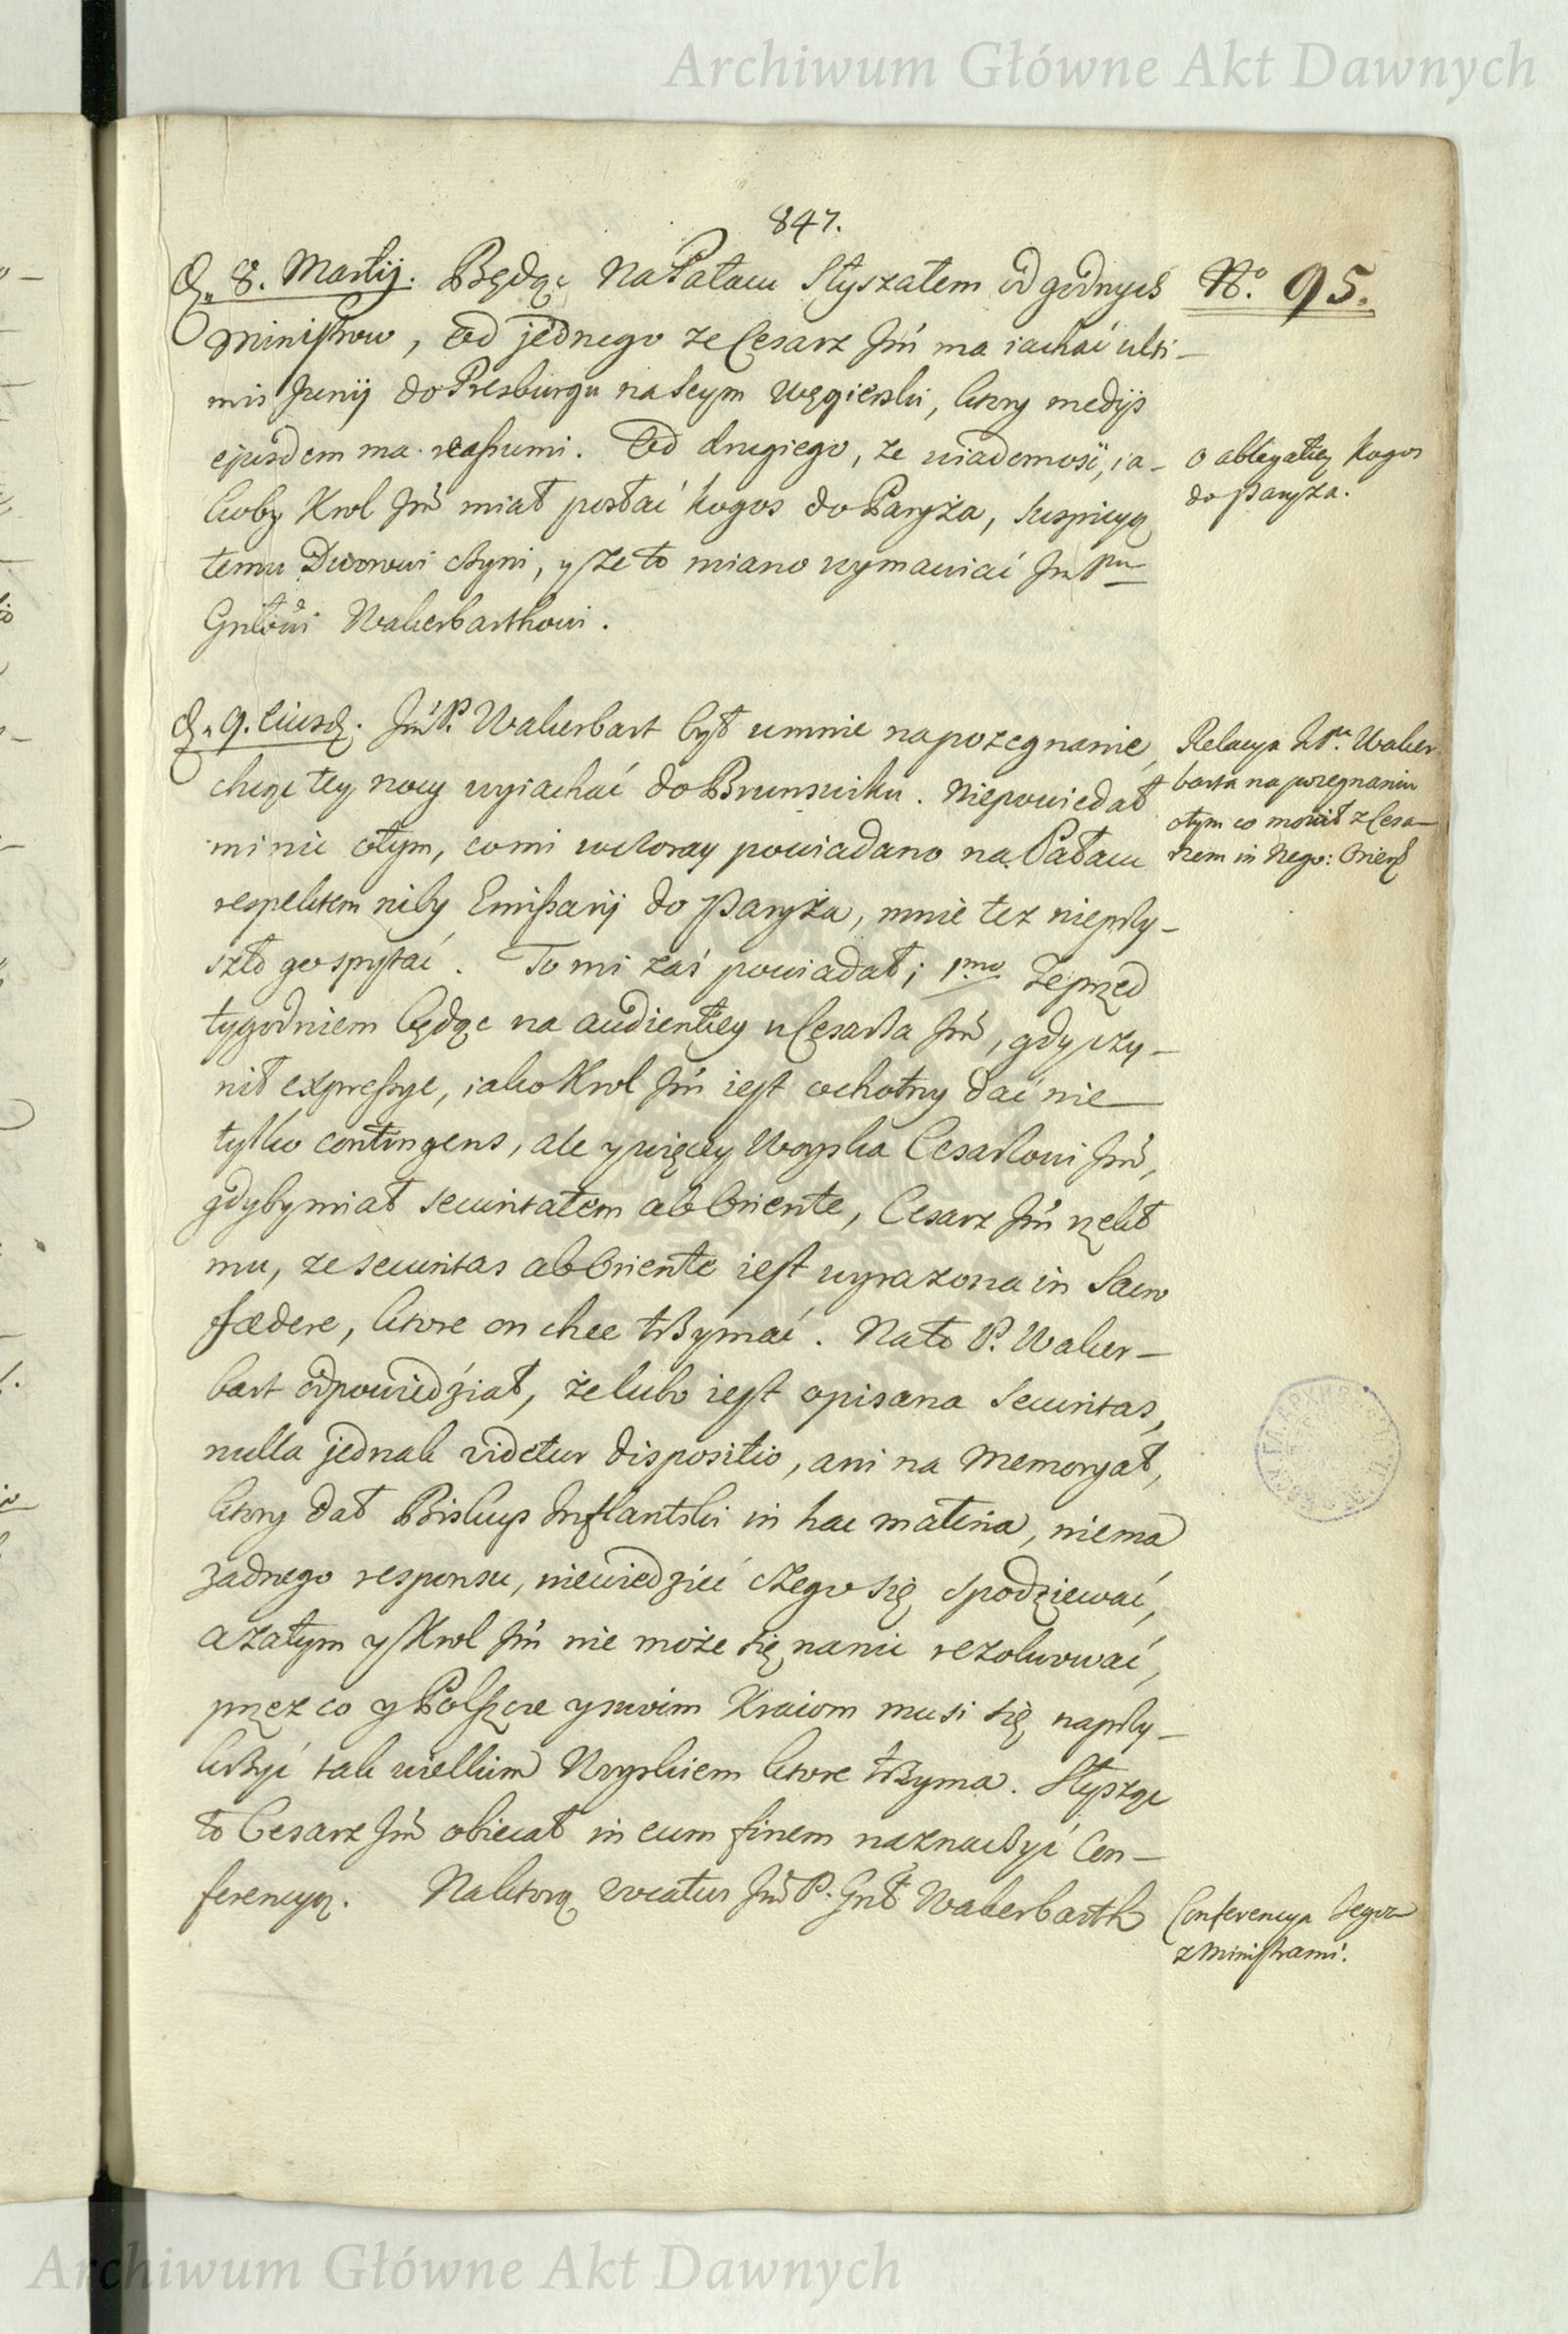 Archiwum Główne Akt Dawnych
847.
D. 8. Martij. Będąc na Pałacu słyszałem od godnych
Ministrow, Od jednego ze Cesarz Jmć ma iachać ulti-
mis Junij do Presburgu na Seym Węgierski, ktory medijs
ejusdem ma reassumi. Od drugiego, ze wiadomość, ia-
koby Krol Jmć miał posłać kogos do Paryża, suspicyą
temu Dworowi czyni, y że to miano wymawiać Jm Pnu
Gnłowi Wakerbarthowi.
D. 9. Eiusd. Jmć P. Wakerbart był umnie napozegnanie,
chcąc tey nocy wyiachać do Brunswiku. Niepowiedał
mi nic otym, co mi wczoray powiadano na Pałacu
respektem niby Emissarij do Paryża, mnie tez nieprzy-
szło go spytać. To mi zaś powiadał; 1mo Ze przed
tygodniem będąc na audientiey u Cesarza Jmć, gdy uczy-
nił expressye, iako Krol Jmć iest ochotny dać nie
tylko contingens, ale y więcey Woyska Cesarzowi Jmć,
gdyby miał securitatem ab Oriente, Cesarz Jmć rzekł
mu, ze securitas ab Oriente iest wyrazona in Sacro
fœdere, ktore on chce trzymać. Na to P. Waker-
bart odpowiedział, że lubo iest opisana securitas,
nulla jednak videtur dispositio, ani na Memoryał,
ktory dał Biskup Inflantski in hac materia, niema
zadnego responsu, niewiedzieć czego się spodziewać,
a zatym y Krol Jmć nie może się nanic rezolwować,
przez co y Polszcze y swoim Kraiom musi się naprzy-
krzyć tak wielkim Woyskiem ktore trzyma. Słysząc
to Cesarz Jmć obiecał in eum finem naznaczyć Con-
ferencyą. Na ktorą vocatus Jmć P. Gnł Wakerbarth
No. 95.
o ablegatiey kogos
do Paryża.
Relacya JPa. Waker-
barta na pozegnaniu
otym co mowił z Cesa-
rzem in Nego: Orient
Conferencya tegoz
z Ministrami.
Archiwum Główne Akt Dawnych